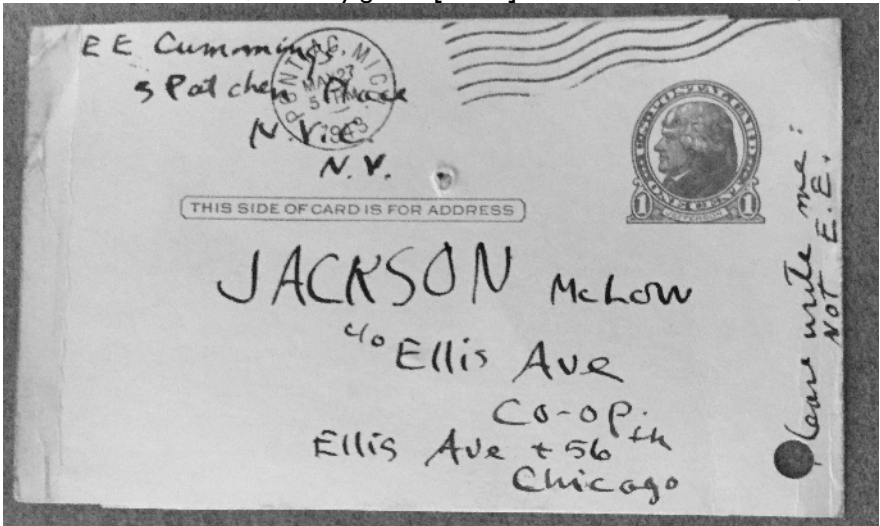 E E Cummings
5 Patchen Place
N. Y. C.
N.Y.
PONTIAC, MICH.
MAY 27
5 PM
1943
U.S. POSTAL CARD
1 ONE CENT 1
JEFFERSON
THIS SIDE OF CARD IS FOR ADDRESS
JACKSON McLow
c/o Ellis Ave
Co-op
Ellis Ave + 56th
Chicago
Please write me:
NOT E.E.